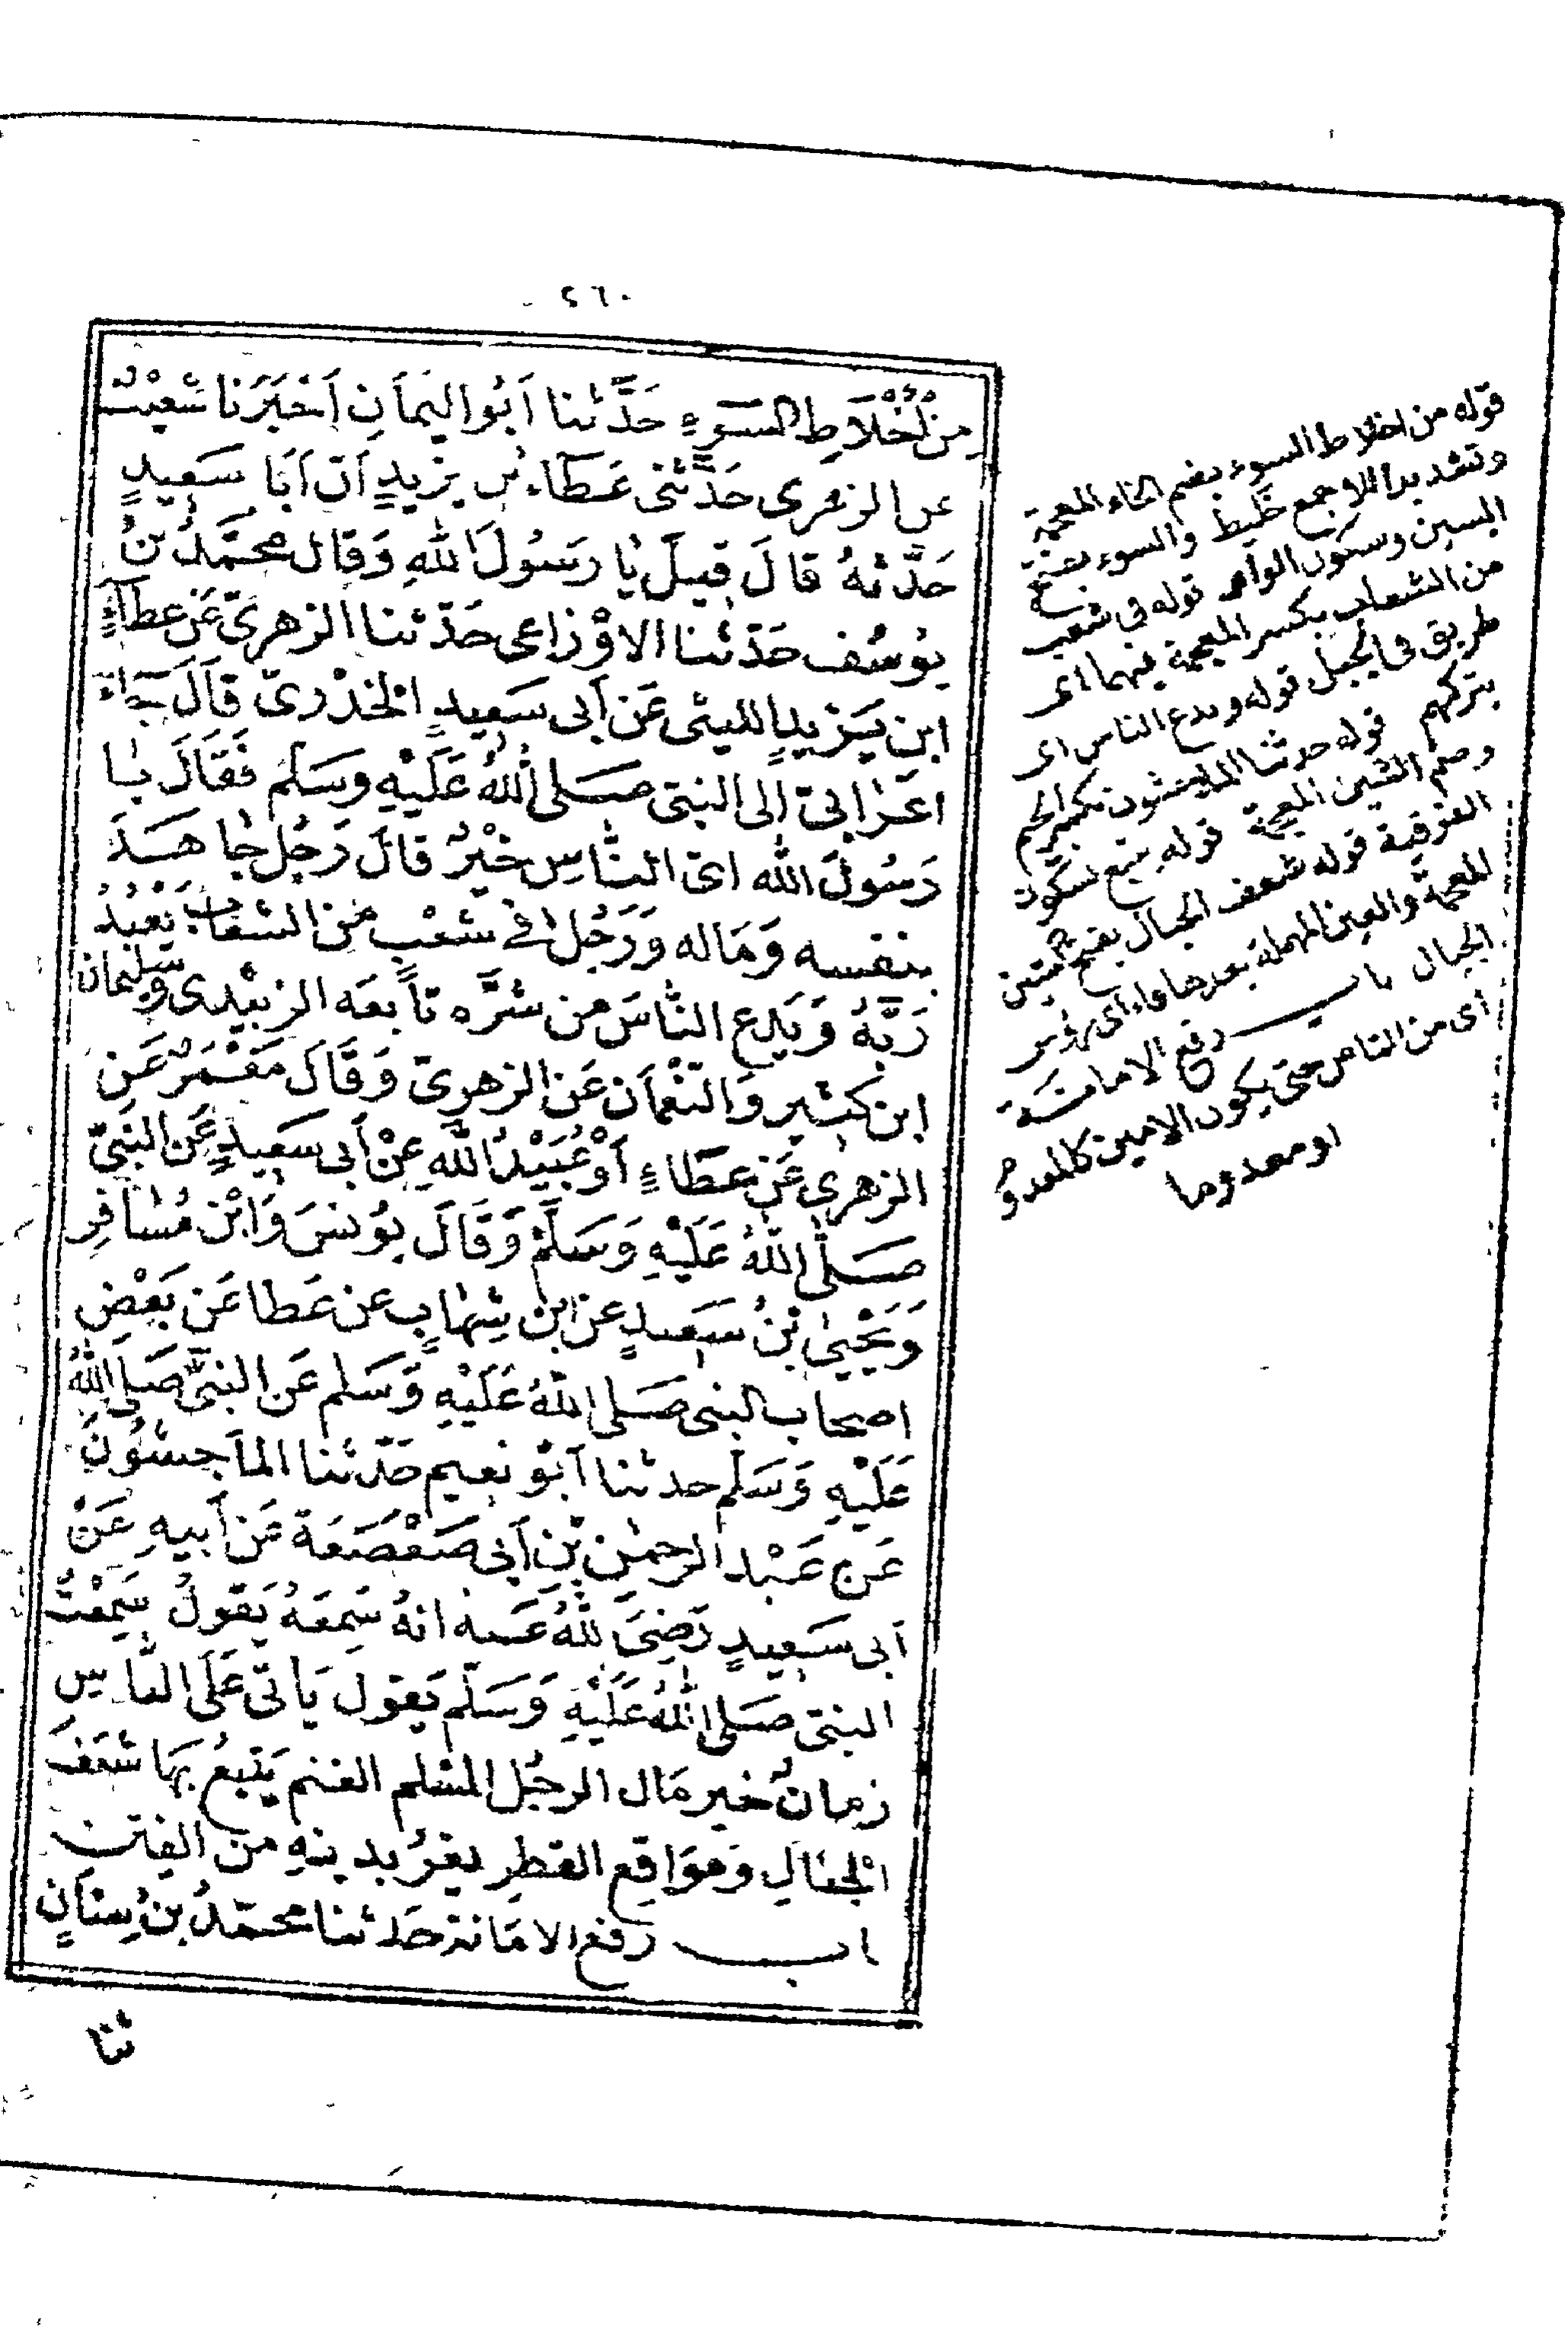 ٢٦٠
مِن خُلَّاطِ السَّوءِ حَدَّثنا اَبُو اليَمَانِ اَخبَرَنا شعَيْبٌ
عن الزهرى حَدَّثنى عَطَاءُ بن يزيدٍ اَنَّ اَبَا سَعِيدٍ
حَدَّثهُ قالَ قيلَ يٰا رَسُولَ اللهِ وَقالَ محمَّدُ بنُ
يوسُف حَدّثنا الاوْزاعى حَدّثنا الزهرىّ عَن عطاءٍ
ابن يَزيدٍ الليثى عَن اَبى سَعِيدٍ الخدْرىّ قَالَ جَاءَ
اعرَابىّ الى النبىّ صَلى اللهُ عَلَيْهِ وسَلم فَقَالَ يٰا
رَسُولَ الله اىّ النّاسِ خيْرٌ قالَ رَجُل جٰاهَدَ
بنفسه وَمَاله وَرَجُل فى شعْب من الشعَاب يَعْبُدُ
رَبَّهُ وَيَدع النّاسَ من شرَّه تاَبعَه الزبَيْدى وَسليمان
ابن كثير وَالنّعْمَان عَن الزهرىّ وَقَالَ مَعْمَرٌ عَنِ
الزهرى عَن عَطَاءٍ اَوْ عُبَيْدُ اللهِ عَنْ اَبى سَعِيدٍ عَن النَبىّ
صَلّى اللهُ عَلَيْهِ وَسَلّم وَقَالَ يُونسَ وَابْنُ مُسٰافِر
وَيَحْيىٰ بْنُ سَعِيدٍ عن ابن شِهٰابٍ عن عَطا عَن بَعْض
اصحاب النبى صَلى اللهُ عَلَيْهِ وَسَلم عَن النبىّ صَلى اللهُ
عَلَيْهِ وَسَلّم حدثنا اَبُو نعيم حَدّثنا الماجشُون
عَن عَبْد الرحمٰن بْن اَبى صَعْصَعَة عَن اَبيهِ عَنْ
اَبى سَعيدٍ رَضىَ اللهُ عَنه انهُ سَمِعَهُ يَقولُ سَمِعْتُ
النبىّ صَلى اللهُ عَلَيْهِ وَسَلّم يَقول يَاتى عَلَى النّاسِ
زمان خير مَال الرجُل المسْلم الغنم يَتبعُ بهَا شعَفَ
الجبَالِ وَموَاقع القطرِ يفرُ بدينهِ من الفِتن
باب رَفع الامَانة حَدثنا محمّدُ بنُ سِنَانٍ
ثنا
قوله من اخلاط السوء بضم الخاء المعجمة
وتشديد اللام جمع خليط والسوء بفتح
السين وسكون الواو قوله فى شعب
من الشعاب بكسر المعجمة فيهما اى
طريق فى الجبل قوله ويدع الناس اى
يتركهم قوله حدثنا الماجشون بكسر الجيم
وضم الشين المعجمة قوله يتبع بسكون
الفوقية قوله شعف الجبال بفتح الشين
المعجمة والعين المهملة بعدها فاء اى رؤس
الجبال باب رفع الامانة
اى من الناس حتى يكون الامين كالمعدوم
او معدوما